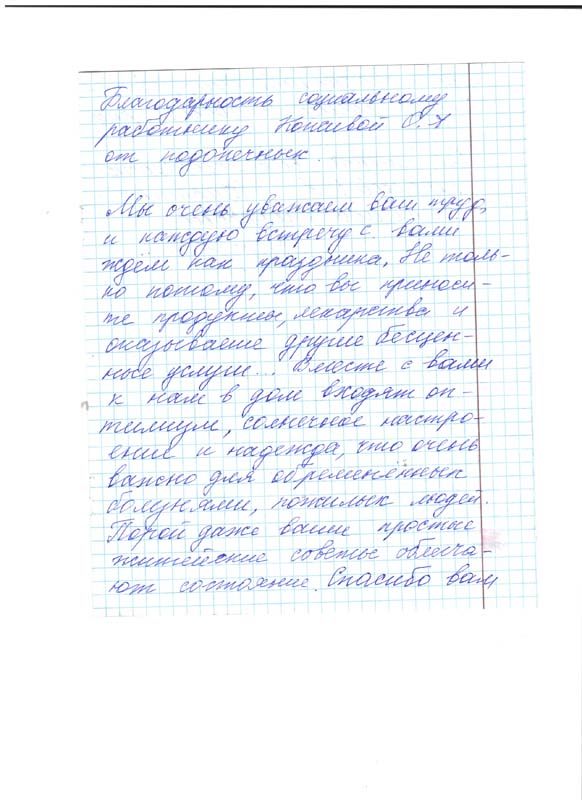 Благодарность социальному
работнику О.А
от подопечных.
Мы очень уважаем ваш труд,
и каждую встречу с вами
ждём как праздника. Не толь-
ко потому, что вы приноси-
те продукты, лекарства и
оказываете другие бесцен-
ные услуги... Вместе с вами
к нам в дом входят оп-
тимизм, солнечное настро-
ение и надежда, что очень
важно для обременённых
болезнями, пожилых людей.
Порой даже ваши простые
житейские советы облегча-
ют состояние. Спасибо вам